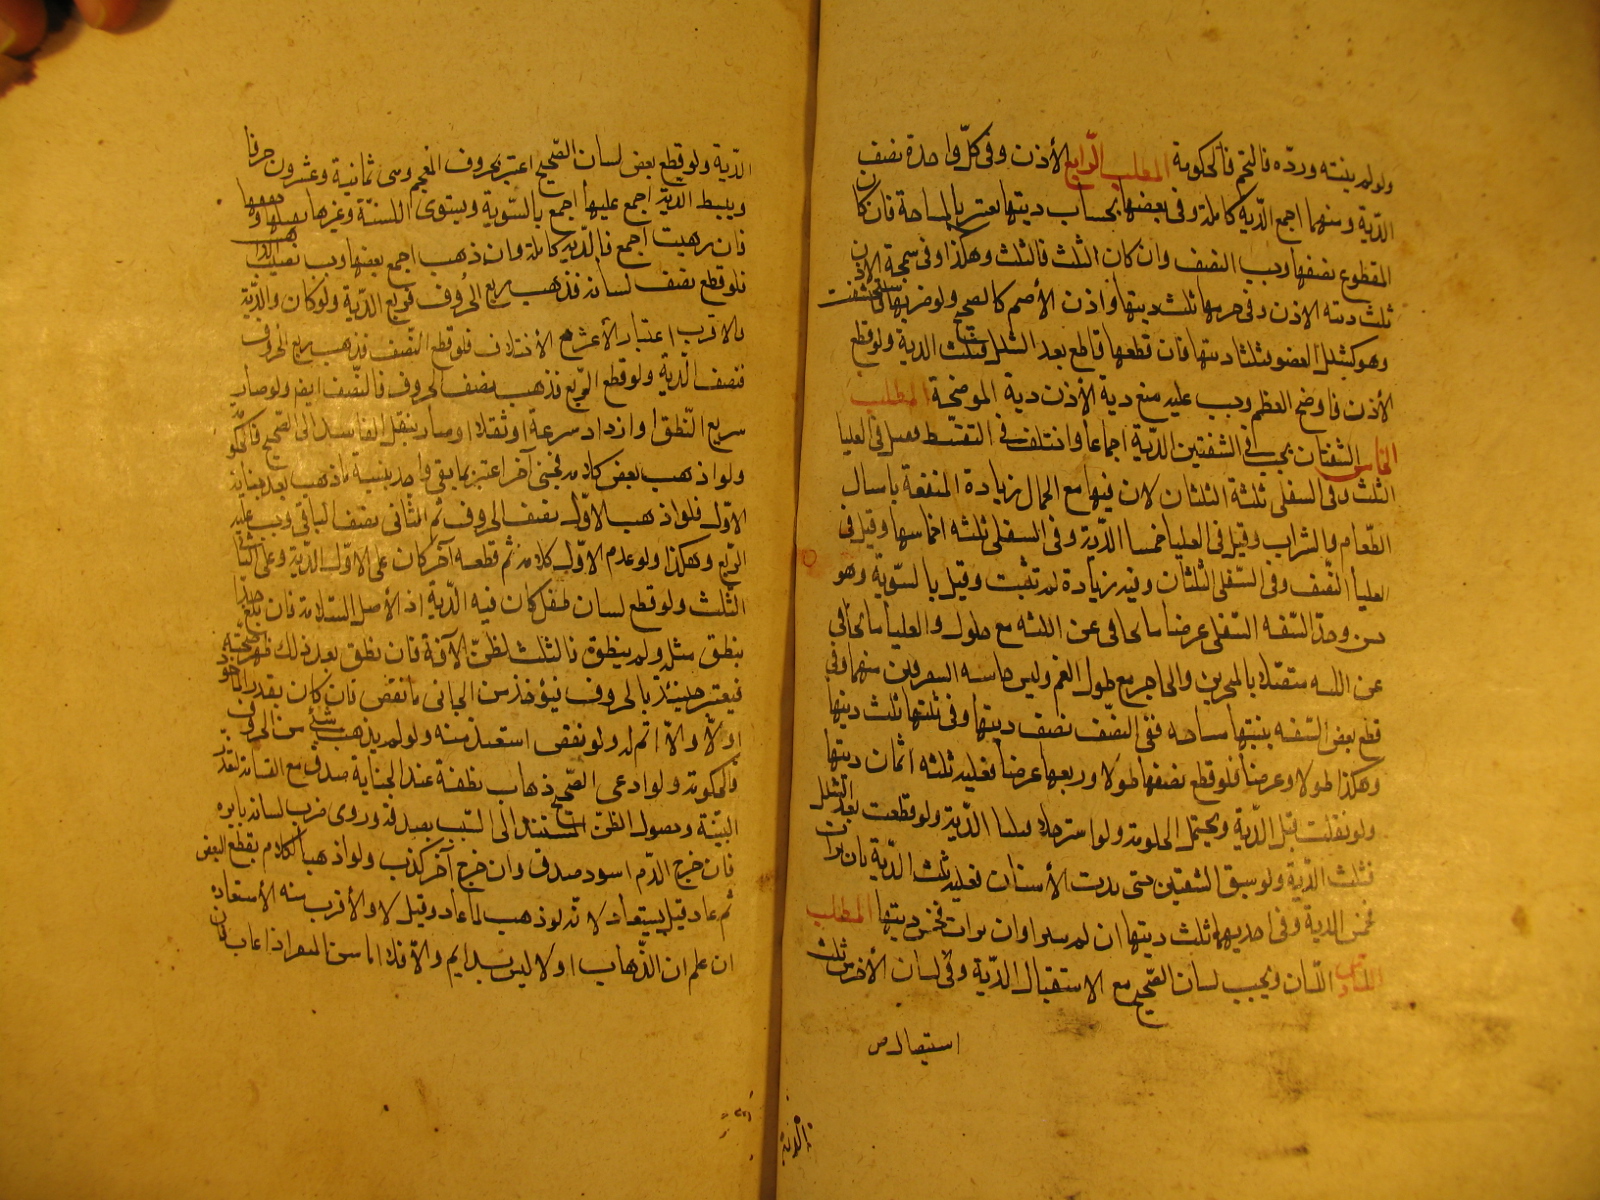 ولو لم يبنته ورده فالتحم فالحكومة المطلب الرابع الأذن وفى كل واحدة نصف
الدية ومنهما اجمع الدية كاملة وفى بعضها بحساب ديتها يعتبر بالمساحة فان كان
المقطوع نصفها وجب النصف وان كان الثلث فالثلث وهكذا وفى شحمة الاذن
ثلث دية الاذن وفى خرمها ثلث ديتها واذن الأصم كالصحيح ولو ضربها فاستحشفت
وهو كشلل العضو فثلثا ديتها فان قطعها قاطع بعد الشلل فثلث الدية ولو قطع
الأذن فاوضح العظم وجب عليه مع دية الأذن دية الموضحة المطلب
الخامس الشفتان يجب فى الشفتين الدية اجماعا واختلف فى التقسيط فقيل فى العليا
الثلث وفى السفلى ثلثة الثلثان لان فيها مع الجمال زيادة المنفعة بامساك
الطعام والشراب وقيل فى العليا خمسا الدية وفى السفلى ثلثه اخماسها وقيل فى
العليا النصف وفى السفلى الثلثان وفيه زيادة لم تثبت وقيل بالسوية وهو
حسن وحد الشفه السفلى عرضا ما تجافى عن اللثه مع طول و العليا ما تجافى
عن اللثه متصلا بالمنخرين والحاجز مع طول الفم وليس حاشيه الشدقين منهما وفى
قطع بعض الشفه بنسبتها مساحه ففى النصف نصف ديتها وفى ثلثها ثلث ديتها
وهكذا طولا وعرضا فلو قطع نصفها طولا وربعها عرضا فعليه ثلثه اثمان ديتها
ولو تقلصت قيل الدية ويحتمل الحكومة ولو استرخا فثلثا الدية ولو قطعت بعد الشلل
فثلث الدية ولو شق الشفتين حتى بدت الأسنان فعليه ثلث الدية فان برات
فخمس الدية وفى احديهما ثلث ديتها ان لم تبرا وان برات فخمس ديتها المطلب
السادس اللسان ويجب لسان الصحيح مع الاستيصال الدية وفى لسان الأخرس ثلث
استيصال ص
الدية
الدية ولو قطع بعض لسان الصحيح اعتبر بحروف المعجم وهى ثمانية وعشرون حرفا
ويبسط الدية اجمع عليها اجمع بالسوية ويستوى اللسنية وغيرها
فان ذهبت اجمع فالدية كاملة وان ذهب اجمع بعضها وجب نصيب الذاهب
فلو قطع نصف لسانه فذهب ربع الحروف فربع الدية ولو كان والدية
فالاقرب اعتبار الأكثر مع الأختلاف فلو قطع النصف فذهب ربع الحروف
فنصف الدية ولو قطع الربع فذهب نصف الحروف فالنصف ايض ولو صار
سريع النطق او ازداد سرعة او ثقلا او صار ينقل الفاسد الى الصحيح فالحكو
ولو اذهب بعض كلامه فجنى آخر اعتبر بما بقى واخذ بنسبة ما ذهب بعد جناية
الاول فلو اذهب الاول نصف الحروف ثم الثانى نصف الباقى وجب عليه
الربع وهكذا ولو عدم الاول كلامه ثم قطعه آخر كان على الاول الدية وعلى الثانى
الثلث ولو قطع لسان طفل كان فيه الدية اذ الأصل السلامة فان بلغ حدا
ينطق مثله ولم ينطق فالثلث لظن الآفة فان نطق بعد ذلك ظهر صحته
فيعتبر حينئذ بالحروف فيؤخذ من الجانى ما نقص فان كان بقدر الماخوذ
اولا والا اتم له ولو نقص استعيد منه ولو لم يذهب شئ من الحروف
فالحكومة ولو ادعى الصحيح ذهاب نطقه عند الجناية صدق مع القسامة لتعذر
البينة وحصول الظن المستند الى السبب بصدقه وروى ضرب لسانه بابره
فان خرج الدم اسود صدق وان خرج آخر كذب ولو اذهب الكلام بقطع البعض
ثم عاد قيل يستعاد لانه لو ذهب لما عاد وقيل لا والأقرب منه الأستعادة
ان علم ان الذهاب اولا ليس بدايم والا فلا اما سن المثغر اذا عاب فان